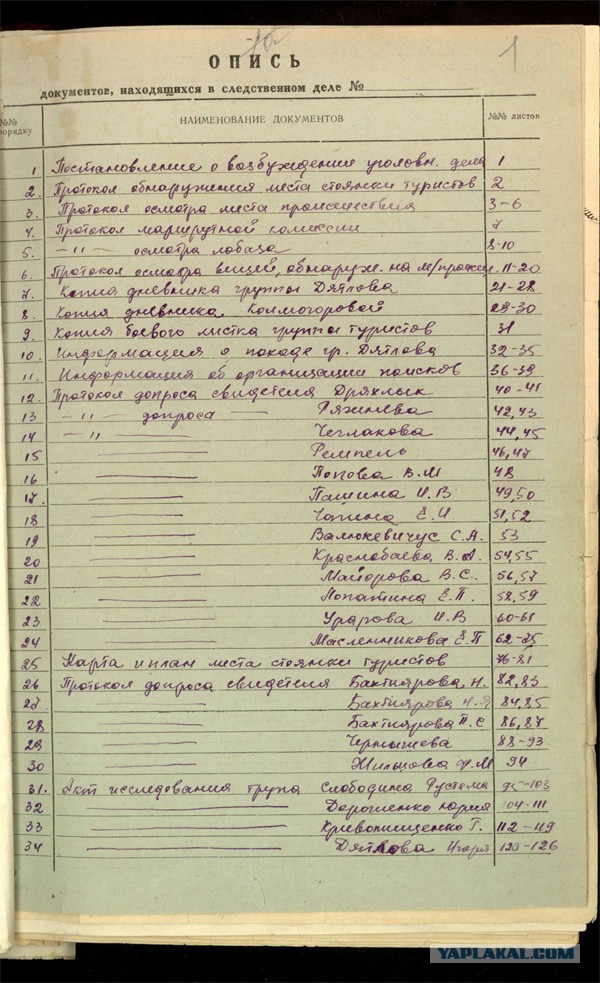 1
ОПИСЬ
документов, находящихся в следственном деле №
№№ порядку НАИМЕНОВАНИЕ ДОКУМЕНТОВ №№ листов
1 Постановление о возбуждении уголовн. дела 1
2. Протокол обнаружения места стоянки туристов 2
3. Протокол осмотра места происшествия 3-6
4. Протокол маршрутной комиссии 7
5. —"— осмотра лабаза 8-10
6. Протокол осмотра вещей, обнаруж. на м/происш. 11-20
7. Копия дневника группы Дятлова 21-28
8. Копия дневника Колмогоровой 29-30
9. Копия боевого листка группы туристов 31
10. Информация о походе гр. Дятлова 32-35
11. Информация об организации поисков 36-39
12. Протокол допроса свидетеля Дряхлых 40-41
13 —"— допроса — Ряжнева 42,43
14 —"— Чеглакова 44,45
15 Ремпель 46,47
16 Попова В.М 48
17. Пашина И.В 49,50
18 Чагина Е.И 51,52
19 Валюкевичус С.А. 53
20 Краснобаева В.А. 54,55
21 Майорова В.С. 56,57
22 Лопатина Е.П. 58,59
23 Уварова И.В 60-61
24 Масленникова Е.П 62-75
25 Карта и план места стоянки туристов 76-81
26 Протокол допроса свидетеля Бахтиярова Н. 82,83
27 Бахтиярова Н.Я 84,85
28 Бахтиярова П.С 86,87
29 Чернышева 88-93
30 Жильцова Ф.М 94
31. Акт исследования трупа Слободина Рустема 95-103
32 Дорошенко Юрия 104-111
33 Кривонищенко Г. 112-119
34 Дятлова Игоря 120-126
YAPLAKAL.COM